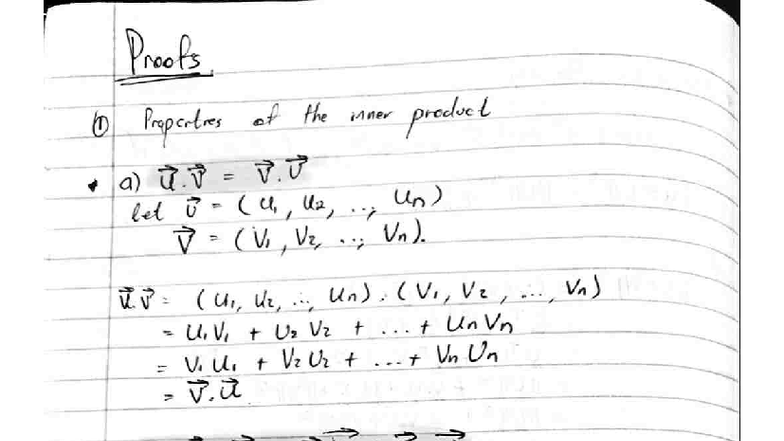 Proofs
① Properties of the inner product
* a) u⃗.v⃗ = v⃗.u⃗
let u⃗ = (u₁, u₂, ..., uₙ)
v⃗ = (v₁, v₂, ..., vₙ).
u⃗.v⃗ = (u₁, u₂, ..., uₙ).(v₁, v₂, ..., vₙ)
= u₁v₁ + u₂v₂ + ... + uₙvₙ
= v₁u₁ + v₂u₂ + ... + vₙuₙ
= v⃗.u⃗